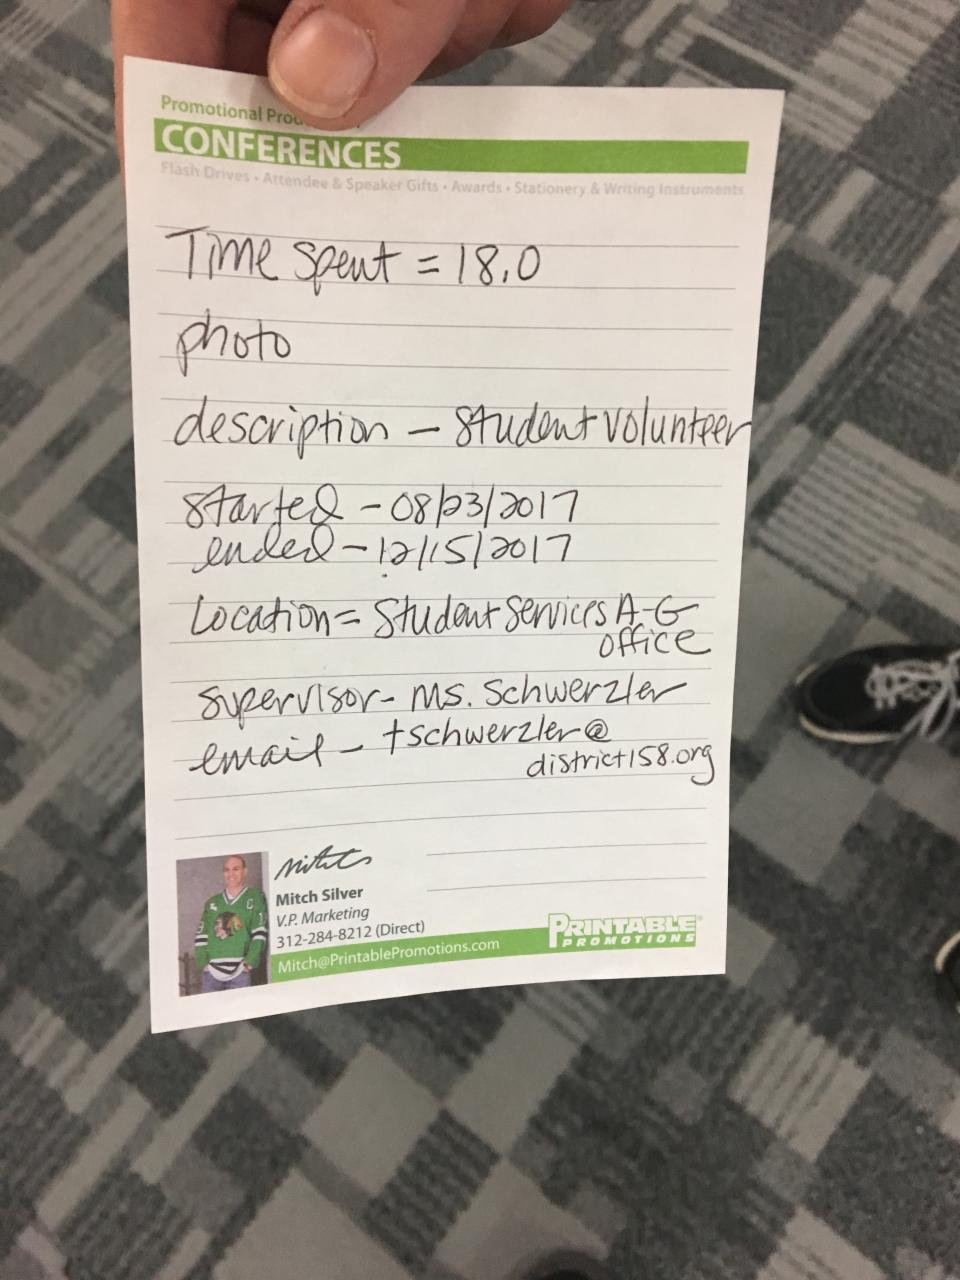 Promotional
CONFERENCES
Flash Drives • Attendee & Speaker Gifts • Awards • Stationery & Writing Instruments
Time spent = 18.0
photo
description - student volunteer
started - 08/23/2017
ended - 12/15/2017
Location = Student Services A-G
office
supervisor - Ms. Schwerzler
email - tschwerzler@
district158.org
Mitch Silver
V.P. Marketing
312-284-8212 (Direct)
Mitch@PrintablePromotions.com
PRINTABLE®
PROMOTIONS